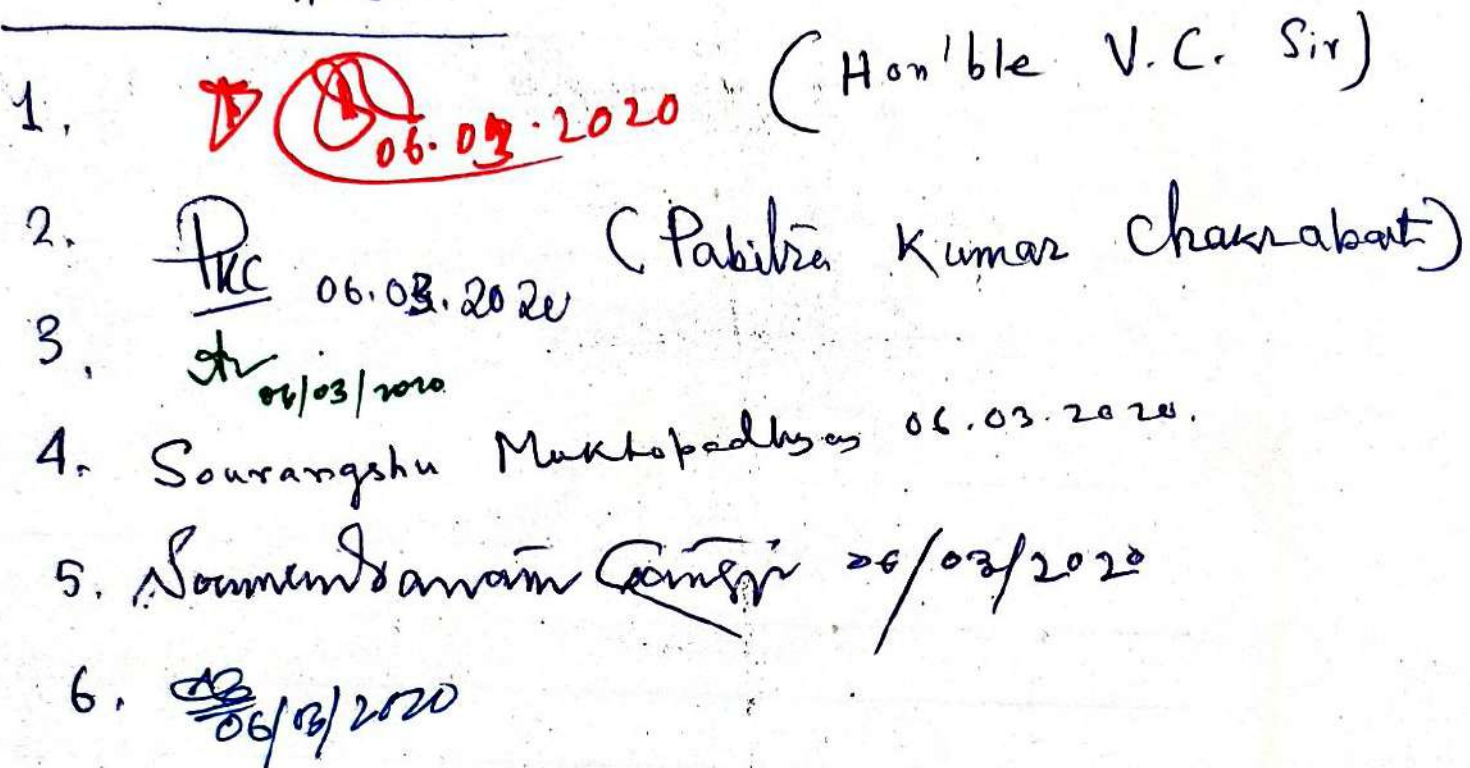 1. 06.03.2020 (Hon'ble V.C. Sir)
2. PKC 06.03.2020 (Pabitra Kumar Chakrabarti)
3. 06/03/2020
4. Sourangshu Mukhopadhyay 06.03.2020.
5. 06/03/2020
6. 06/03/2020